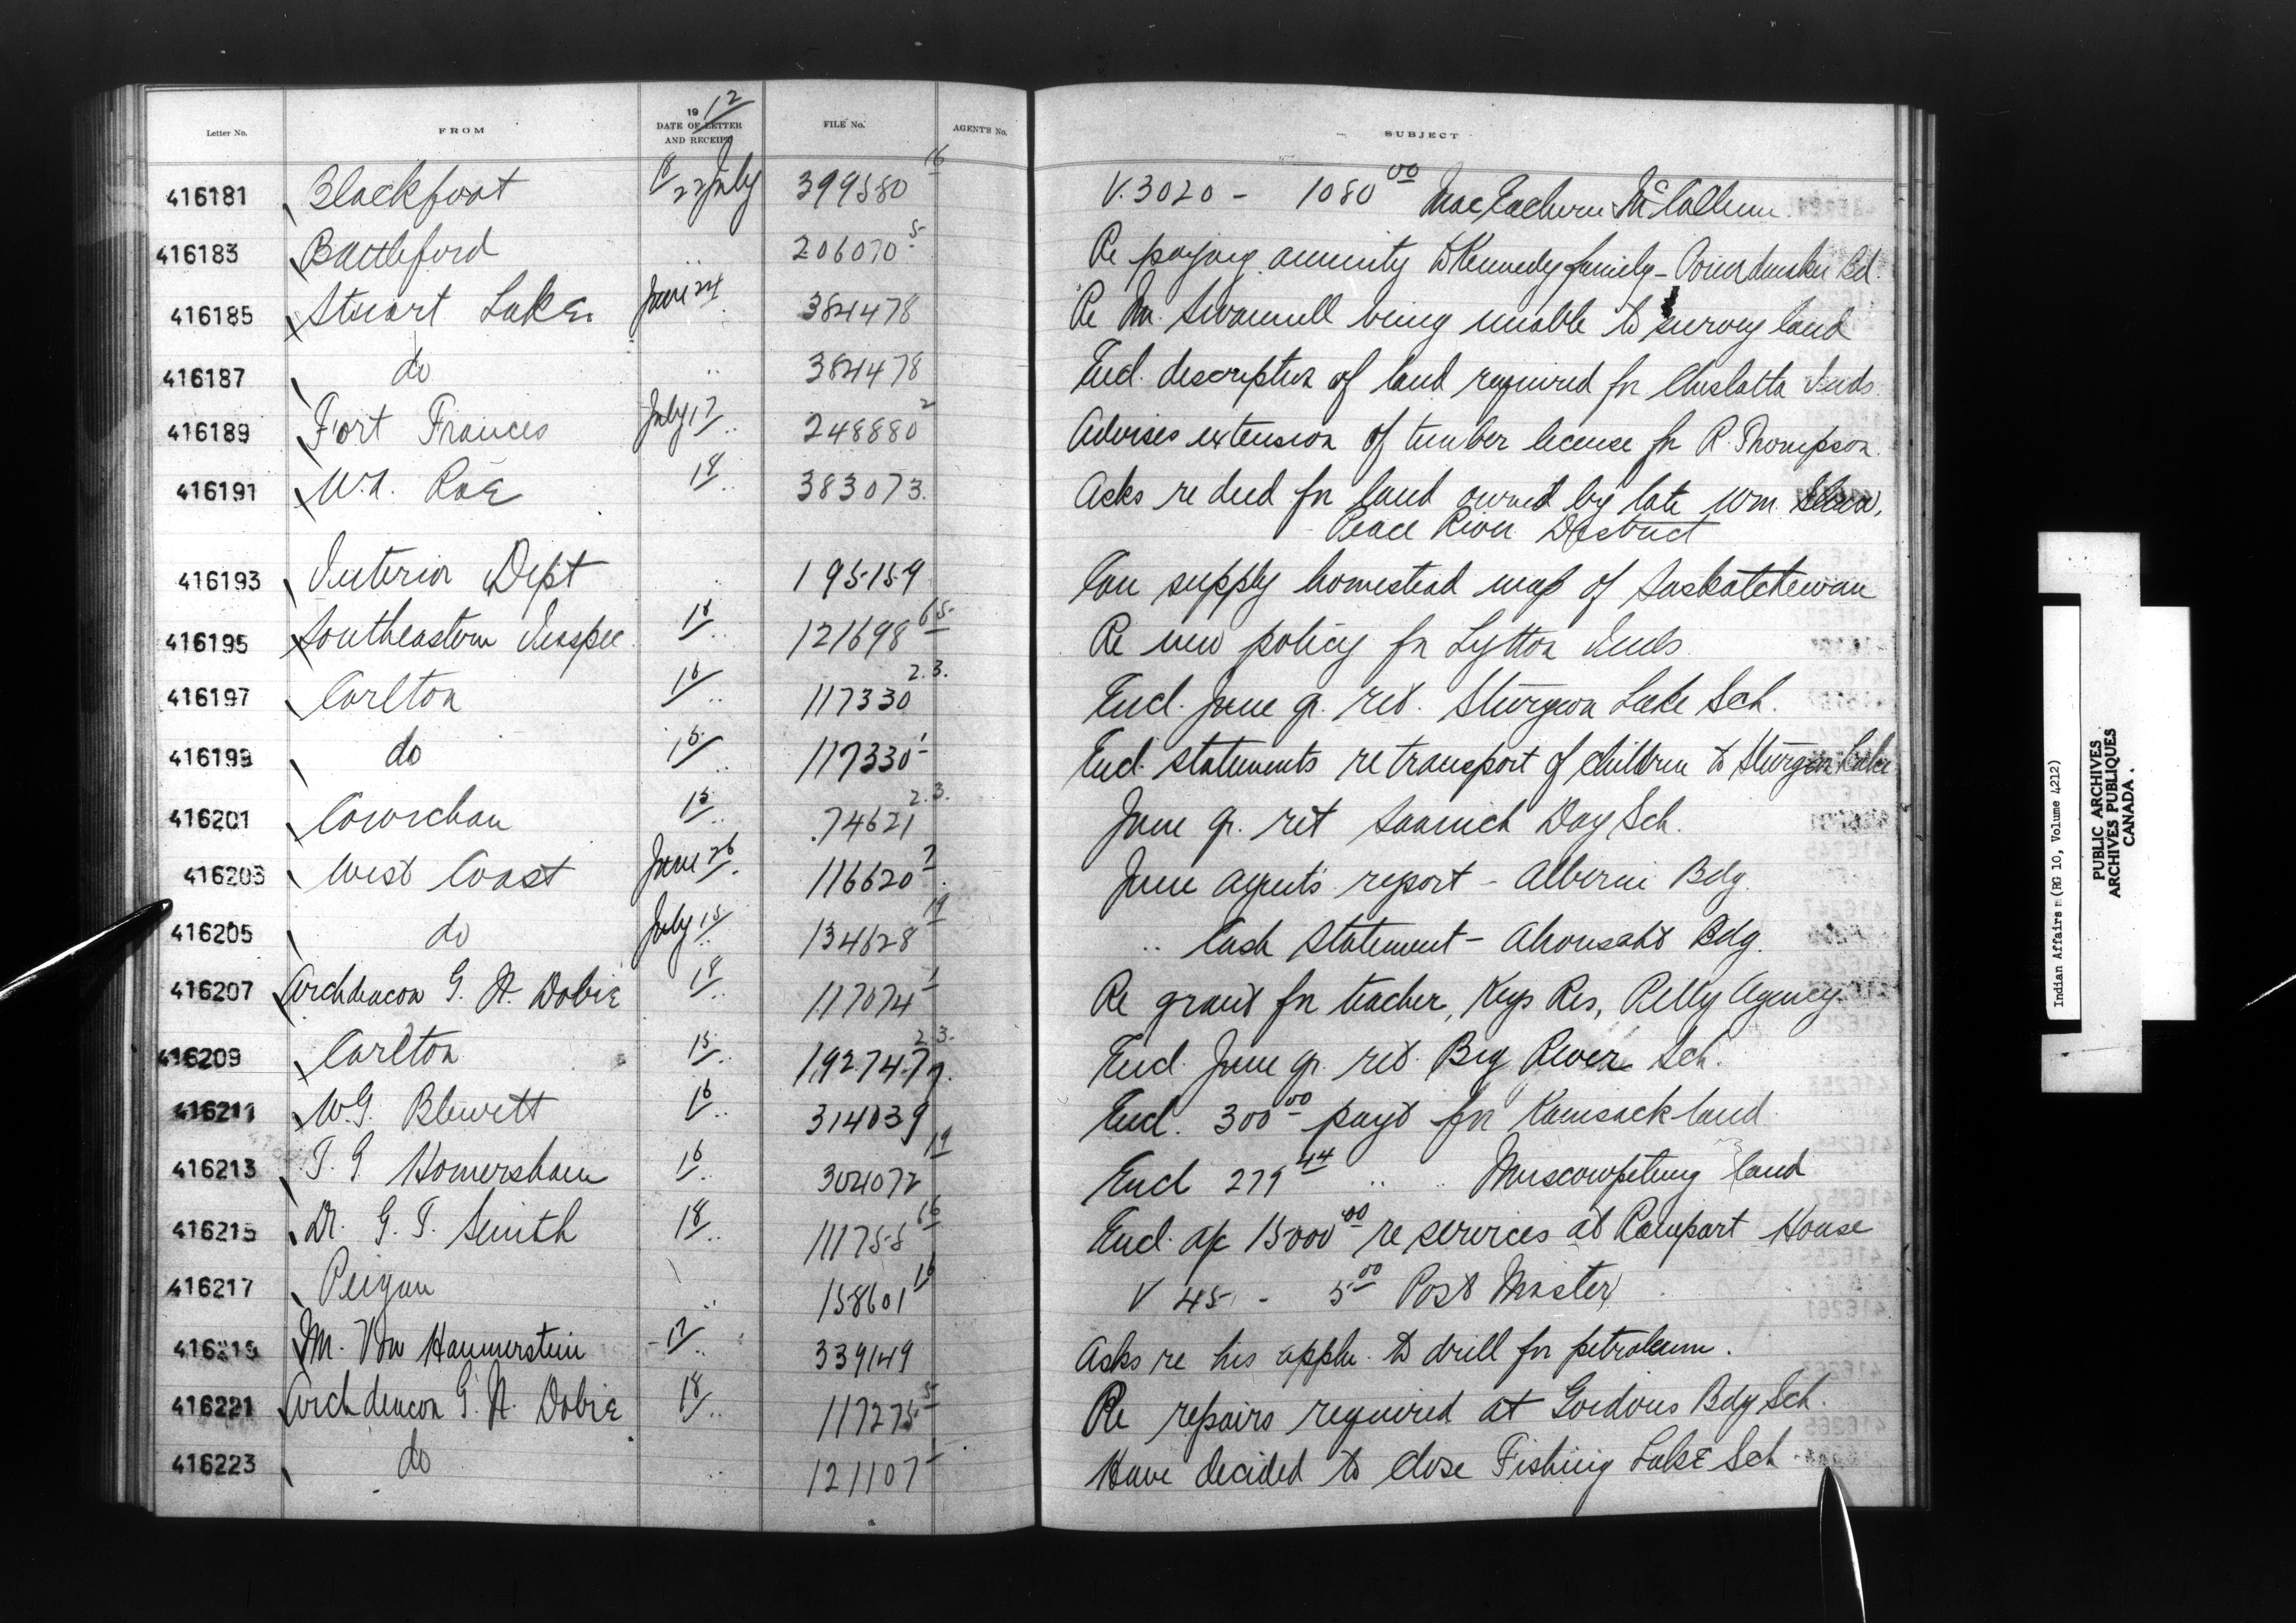 Letter No. FROM 1912 DATE OF LETTER AND RECEIPT FILE No. AGENT'S No. SUBJECT
416181 Blackfoot 22 July 399580 16 V. 3020 - 1080 00 MacEachern & McCallum
416183 Battleford .. 206070 5 Re paying annuity to Kennedy family - Bd.
416185 Stuart Lake June 24 384478 Re Mr. Swannell being unable to survey land
416187 do .. 384478 Encl. description of land required for Cheslatta Inds.
416189 Fort Frances July 17 .. 248880 2 Advises extension of timber license for R. Thompson.
416191 W.A. Rae 18 .. 383073. Asks re deed for land owned by late Wm.
Peace River District
416193 Interior Dept .. 195159 Can supply homestead map of Saskatchewan
416195 Southeastern Inspec. 18 .. 121698 65 Re new policy for Lytton Inds.
416197 Carlton 16 .. 117330 2.3. Encl. June qr. ret. Sturgeon Lake Sch.
416199 do 15 .. 117330 1 Encl. statements re transport of children to Sturgeon Lake
416201 Cowichan 15 .. 74621 2.3. June qr. ret Saanich Day Sch.
416203 West Coast June 26 116620 7 June agent's report - Alberni Bdg.
416205 do July 15 .. 134628 19 .. Cash statement - Ahousaht Bdg.
416207 Archdeacon G. N. Dobie 18 .. 117074 1 Re grant for teacher, Keys Res, Pelly Agency
416209 Carlton 15 .. 192747 2.3. Encl. June qr. ret. Big River Sch.
416211 W.G. Blewett 16 .. 314039 Encl. 300 00 payt for Kamsack land
416213 T. G Homersham 16 .. 304072 19 Encl 279 44 .. .. Muscowpetung land
416215 Dr. G. T. Smith 18 .. 111755 16 Encl. a/c 15000 00 re services at Rampart House
416217 Peigan .. 158601 16 V 45 - 5 00 Post Master
416219 M. Von Hammerstein 17 .. 339149 Asks re his appln. to drill for petroleum.
416221 Archdeacon G. N. Dobie 18 .. 117275 5 Re repairs required at Gordons Bdg Sch.
416223 do .. 121107 1 Have decided to close Fishing Lake Sch
Indian Affairs (RG 10, Volume 4212)
PUBLIC ARCHIVES
ARCHIVES PUBLIQUES
CANADA.